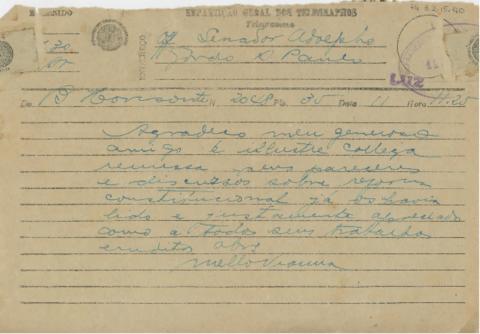 74 82.15.40
REPARTIÇÃO GERAL DOS TELEGRAPHOS
Telegramma
ENDEREÇO
Senador Adolpho
Gordo S. Paulo
20
LUZ
De B Horisonte N. 2048 Pls. 35 Data 11 Hora 11.20
Agradeço meu generoso
amigo e illustre collega
remessa seus pareceres
e discursos sobre reforma
constitucional já os havia
lido e justamente apreciados
como a todos seus trabalhos
eruditos abrs
Mello Vianna